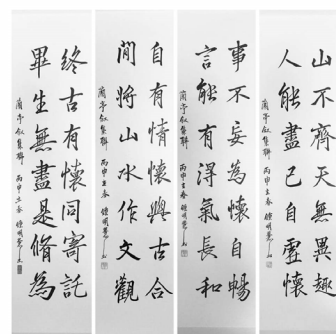 山不齊天無異趣
人能盡己自虛懷
蘭亭敘集聯 丙申
事不妄為懷自暢
言能有得氣長和
蘭亭敘集聯 丙申
自有情懷與古合
閒將山水作文觀
蘭亭敘集聯 丙申
終古有懷同寄託
畢生無盡是脩為
蘭亭敘集聯 丙申